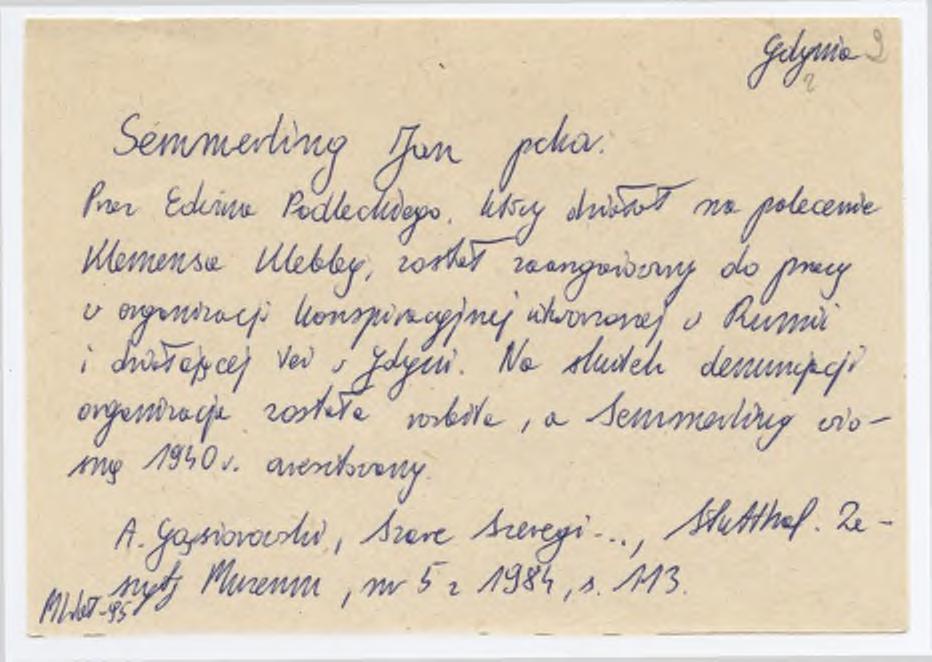 Gdynia 9
?
Semmerling Jan pcka.
Przez Edwina Podleckiego, który działał na polecenie
Klemensa Klebby, został zaangażowany do pracy
w organizacji konspiracyjnej utworzonej w Rumii
i działającej też w Gdyni. Na skutek denuncjacji
organizacja została rozbita, a Semmerling wio-
snę 1940 r. aresztowany.
A. Gąsiorowski, Szare Szeregi..., Stutthof. Ze-
szyty Muzeum, nr 5 z 1984, s. 113.